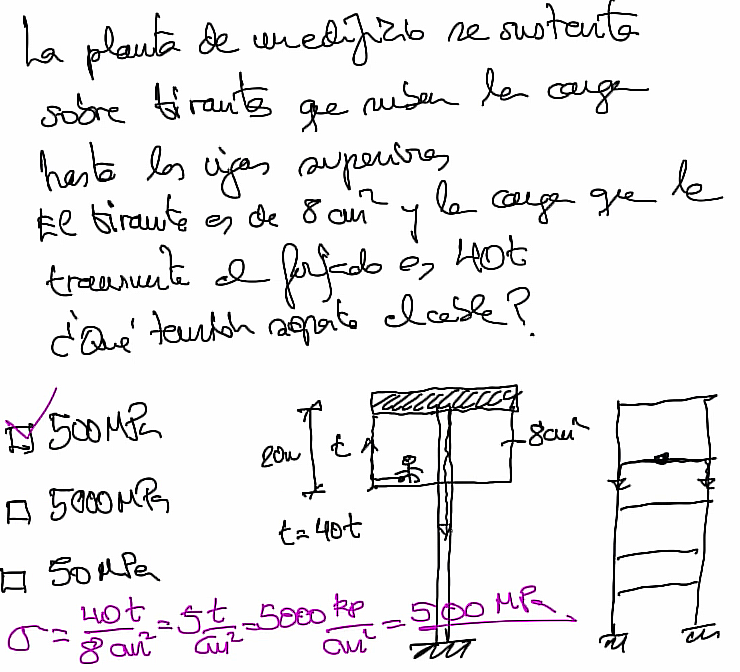 La planta de un edificio se sustenta
sobre tirantes que suben la carga
hasta las vigas superiores
El tirante es de 8 cm² y la carga que le
transmite el forjado es 40t
¿Qué tensión soporta el cable?
500 MPa
5000 MPa
50 MPa
20m
t
8cm²
t = 40t
σ = 40t / 8 cm² = 5 t/cm² = 5000 kp/cm² = 500 MPa